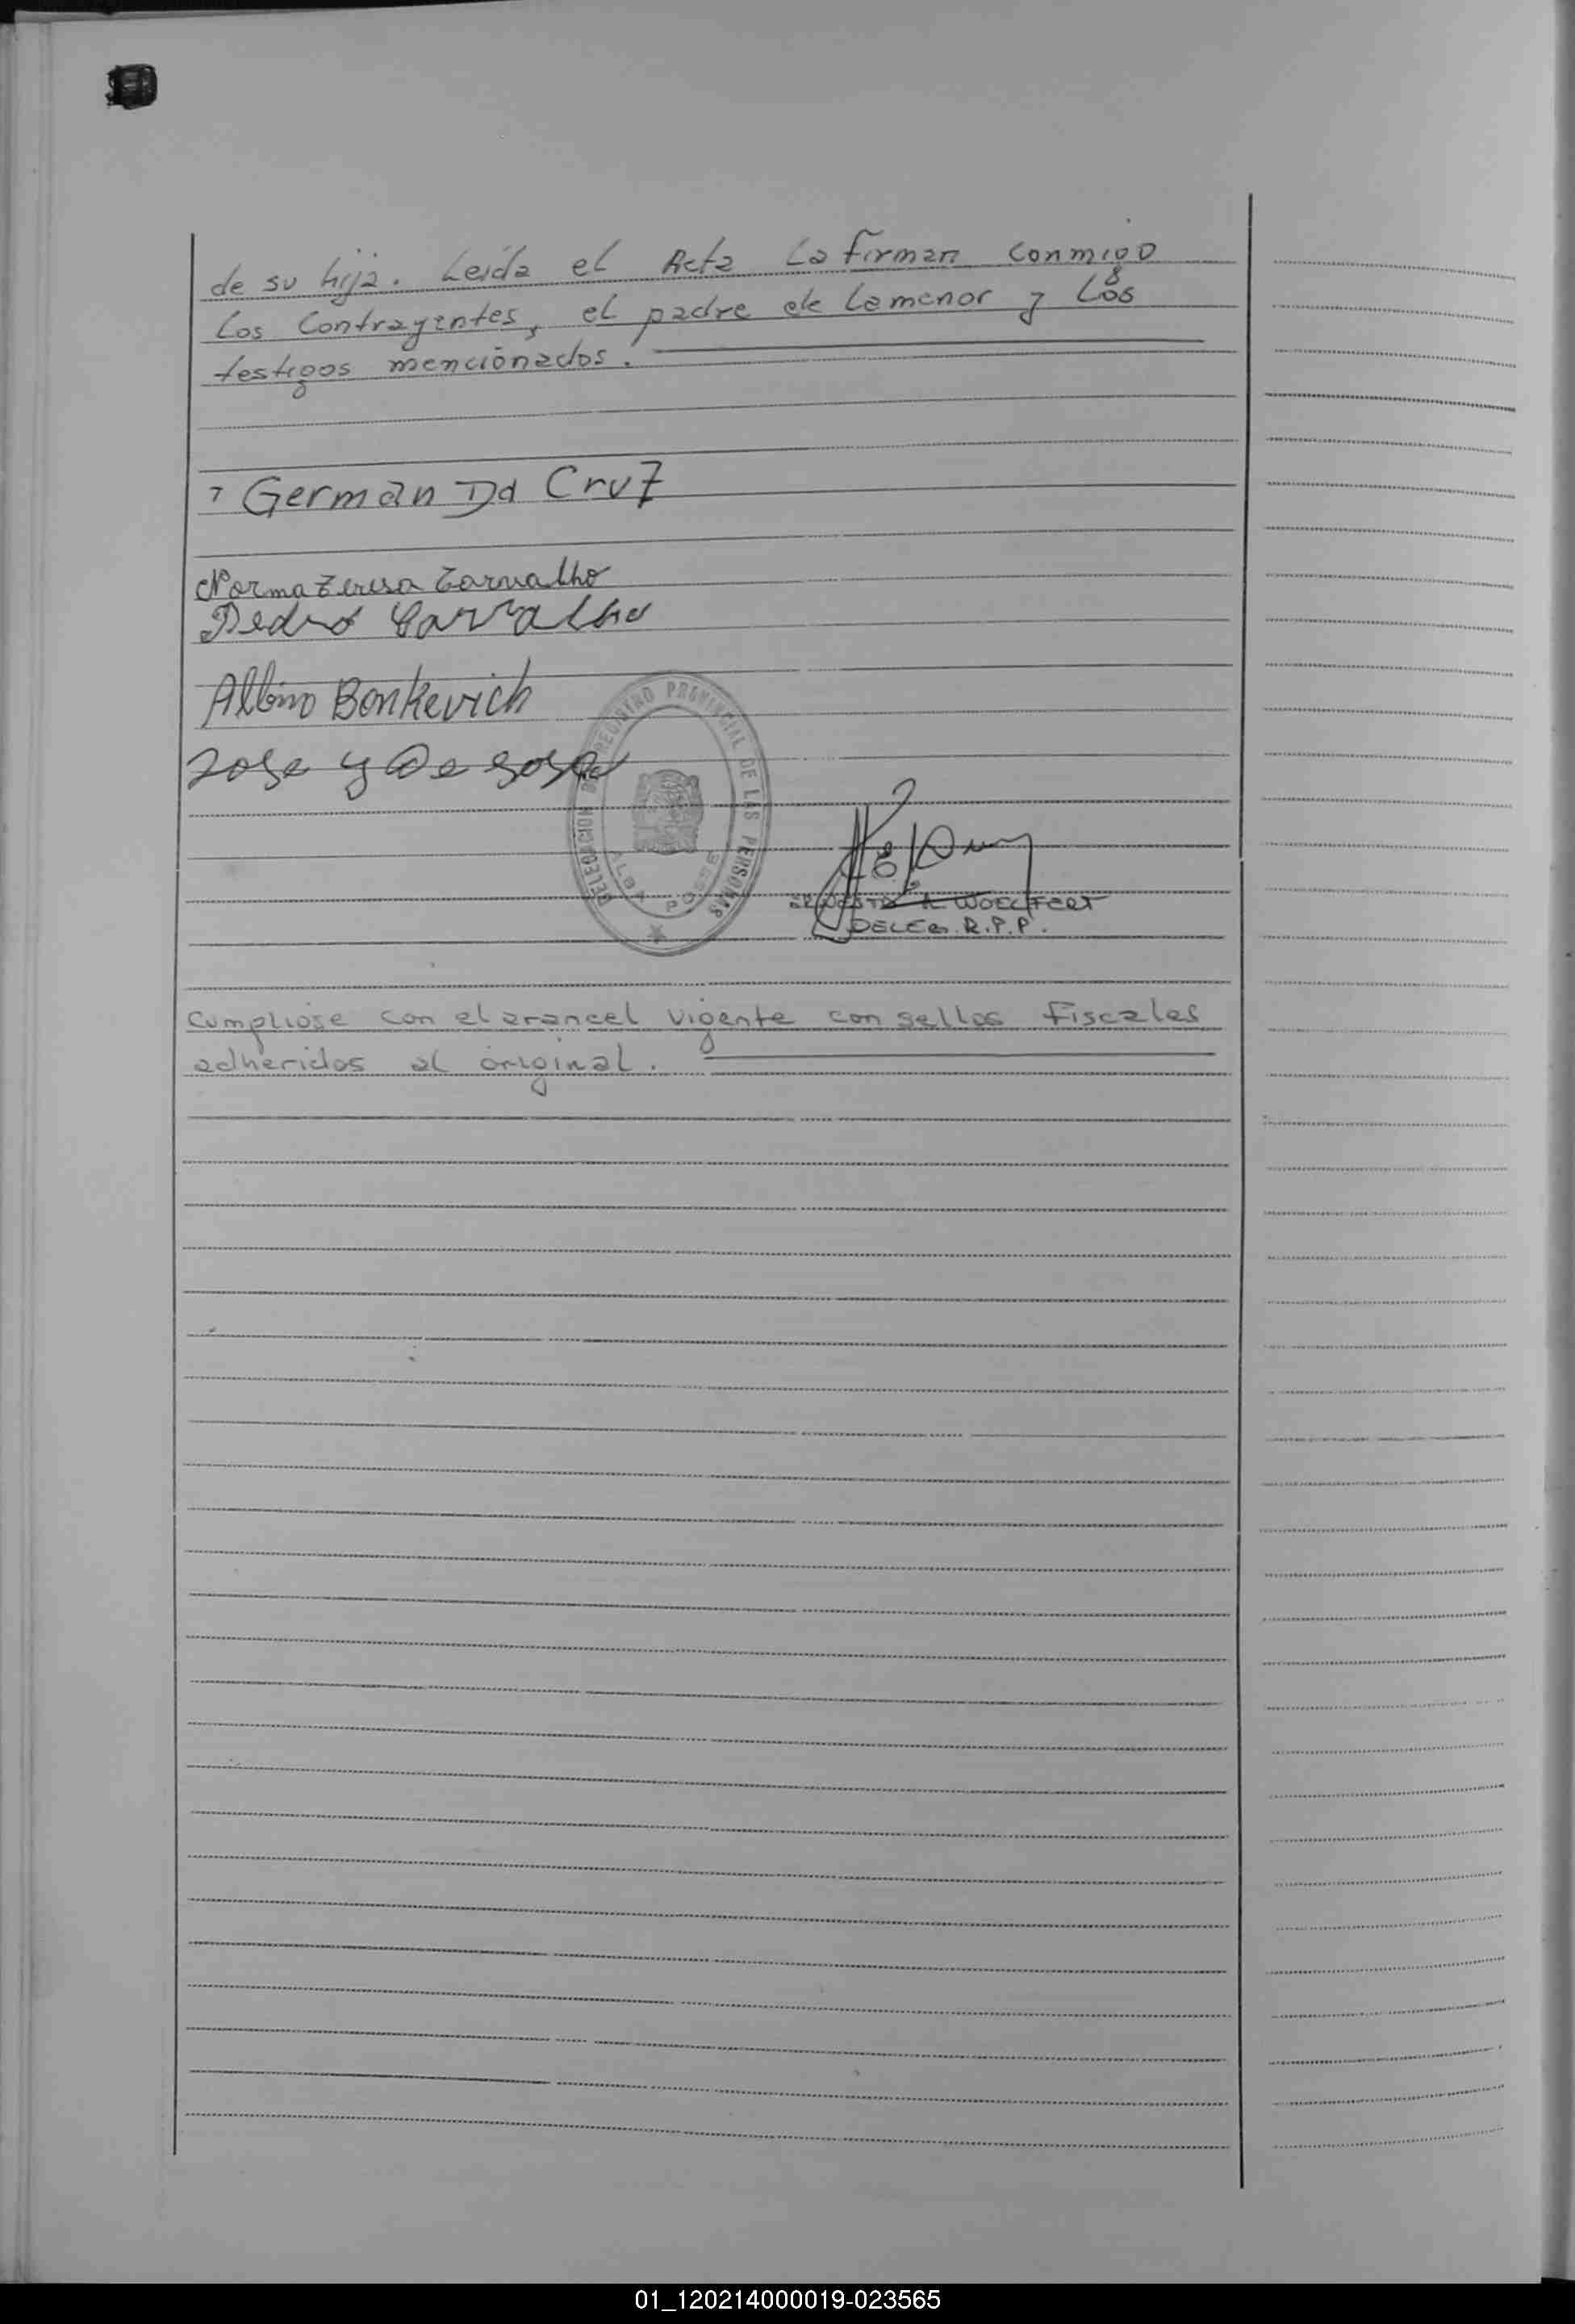 de su hija. Leida el Acta La firman conmigo
Los Contrayentes, el padre de la menor y Los
testigos mencionados.
German Da Cruz
Norma Teresa Carvalho
Pedro Carvalho
Albino Bonkevich
Jose y De sosa
DELEGACION DEL REGISTRO PROVINCIAL DE LAS PERSONAS
ALBA POSSE
ERNESTO R WOELFERT
DELEG. R.P.P.
Cumpliose con el arancel vigente con sellos Fiscales
adheridos al original.
01_120214000019-023565